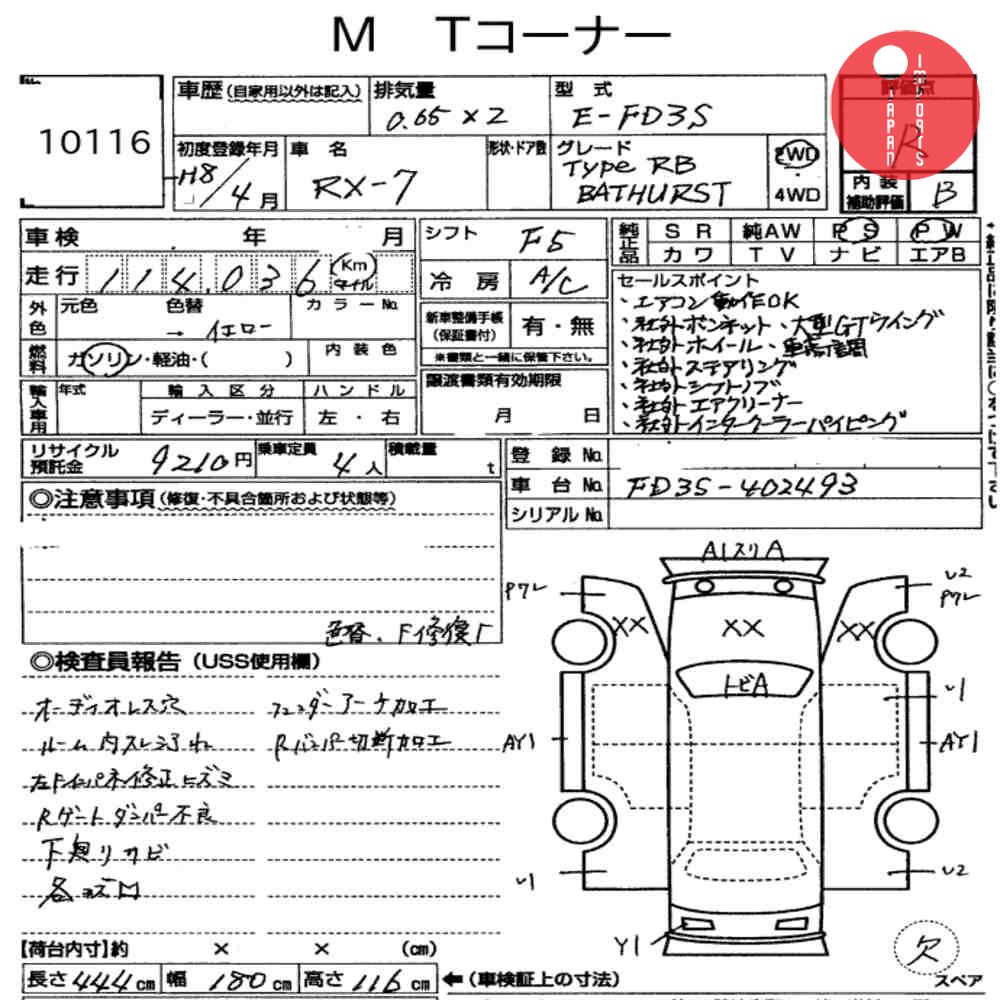 M Tコーナー
10116
車歴 (自家用以外は記入)
排気量
0.65×2
型式
E-FD3S
評価点
R
JAPAN IMPORTS
初度登録年月
H8/4月
車名
RX-7
形状・ドア数
グレード
Type RB
BATHURST
2WD
4WD
内装
補助評価
B
車検 年 月
走行 114,036 Km マイル
シフト F5
冷房 A/C
純正品
SR 純AW PS PW
カワ TV ナビ エアB
外色
元色 色替 カラーNo.
→ イエロー
燃料
ガソリン・軽油・( )
内装色
新車整備手帳
(保証書付)
有・無
※書類と一緒に保管下さい。
セールスポイント
・エアコン動作OK
・社外ボンネット・大型GTウイング
・社外ホイール・車高調
・社外ステアリング
・社外シフトノブ
・社外エアクリーナー
・社外インタークーラーパイピング
輸入車用
年式
輸入区分
ディーラー・並行
ハンドル
左・右
譲渡書類有効期限
月 日
リサイクル
預託金
9210円
乗車定員
4人
積載量
t
登録No.
車台No. FD3S-402493
シリアルNo.
◎注意事項 (修復・不具合箇所および状態等)
色替、F修復
◎検査員報告 (USS使用欄)
オーディオレス穴
ルーム内スレヨゴレ
左Fインパネ修正ヒズミ
Rゲートダンパー不良
下廻りサビ
各キズM
フェンダーアーチ加工
Rバンパー切断加工
A1スリA
Pワレ
U2
Pワレ
XX
XX
XX
トビA
U1
AY1
AY1
U1
U2
Y1
欠
スペア
【荷台内寸】約 × × (cm)
長さ444cm 幅180cm 高さ116cm
←(車検証上の寸法)